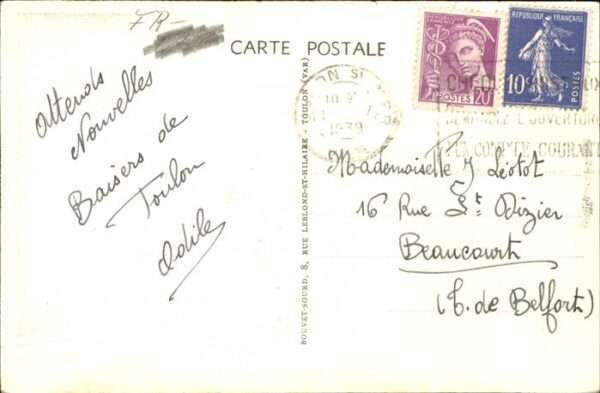 FR-
CARTE POSTALE
Attends
Nouvelles
Baisers de
Toulon
Odile
BOUVET-SOURD, 8, RUE LEBLOND-ST-HILAIRE - TOULON (VAR)
1939
POSTES 20
REPUBLIQUE FRANÇAISE
10c
POSTES
L'OUVERTURE
COMPTE COURANT
Mademoiselle Y Léotot
16 Rue St Dizier
Beaucourt
(T. de Belfort)